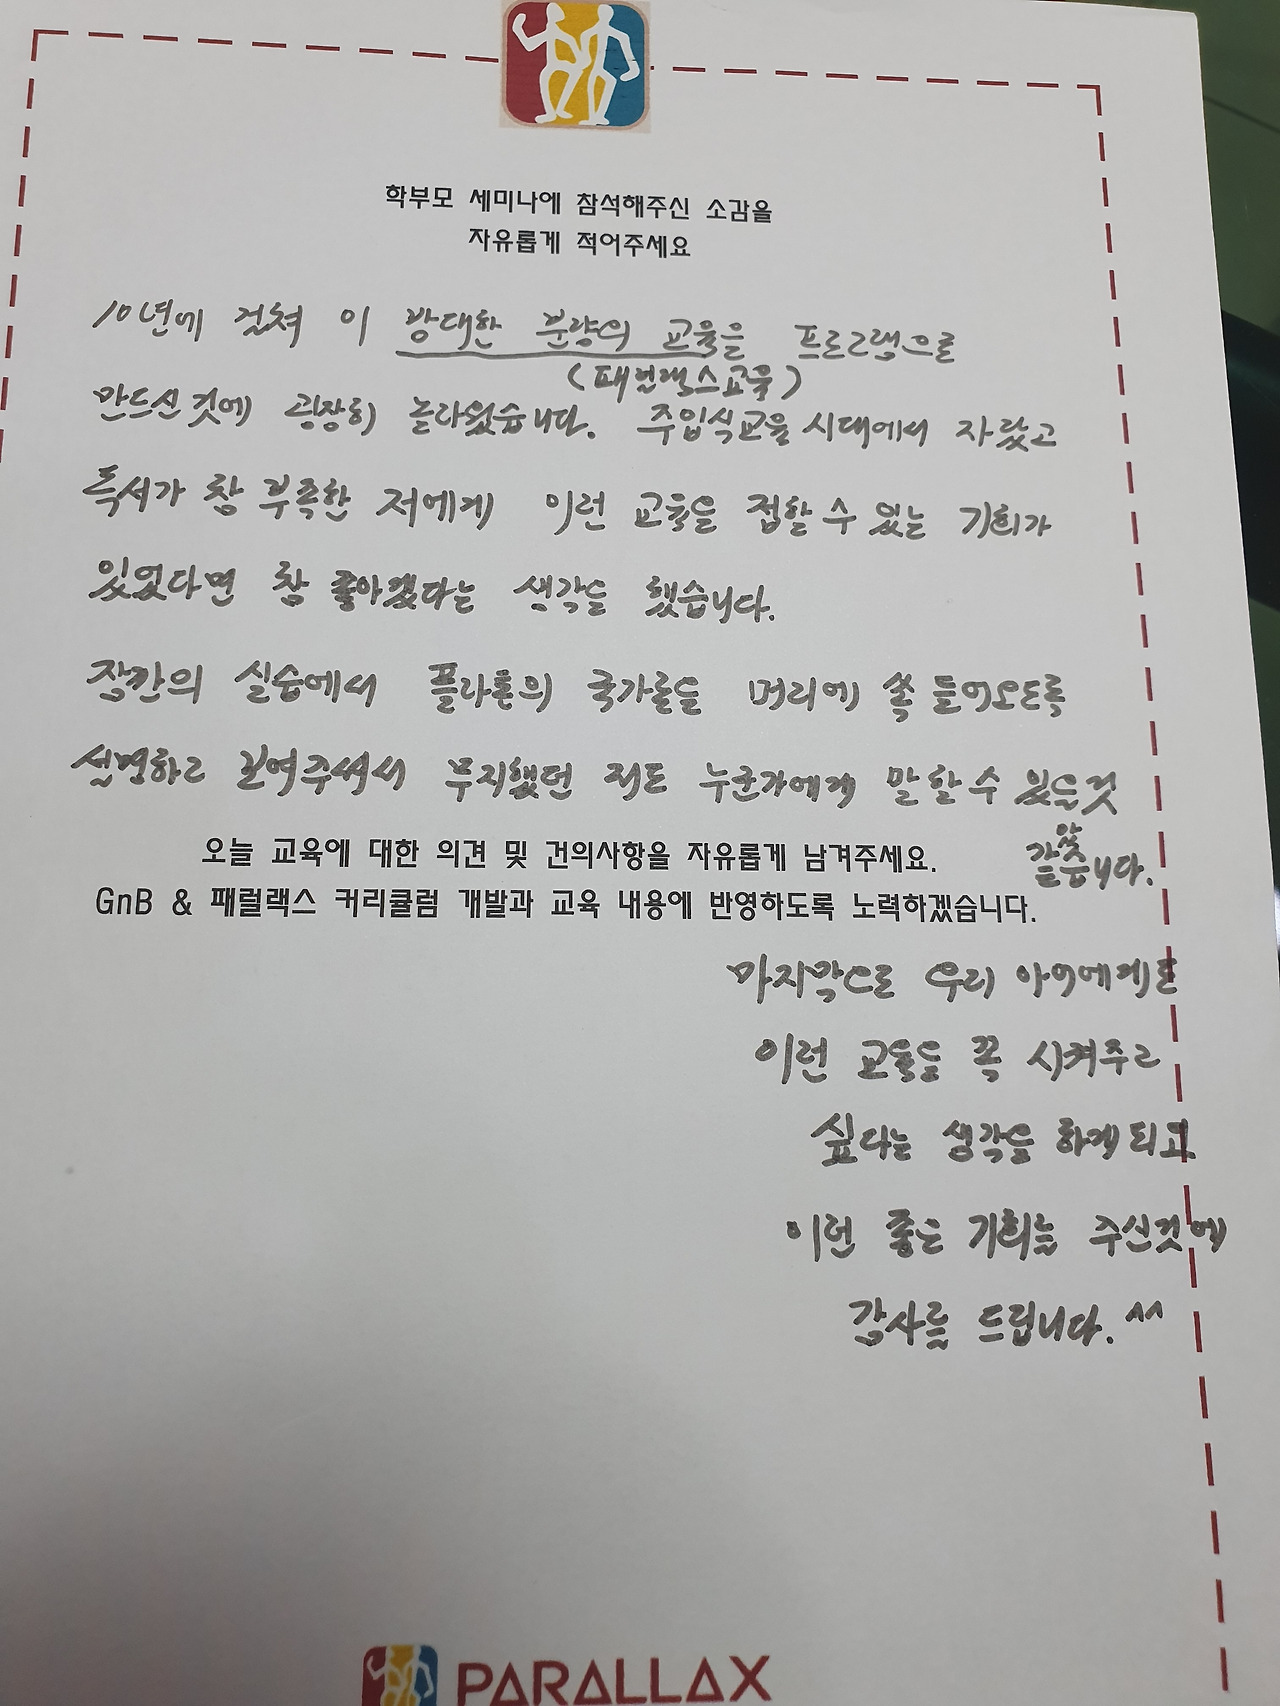 학부모 세미나에 참석해주신 소감을
자유롭게 적어주세요
10년에 걸쳐 이 방대한 분량의 교육을 프로그램으로
(패럴랙스교육)
만드신것에 굉장히 놀라웠습니다. 주입식교육 시대에서 자랐고
독서가 참 부족한 저에게 이런 교육을 접할 수 있는 기회가
있었다면 참 좋아겠다는 생각을 했습니다.
장간의 실습에서 플라톤의 국가론을 머리에 쏙 들어오도록
설명하고 보여주셔서 무지했던 저도 누군가에게 말할 수 있을것
같
았습니다.
오늘 교육에 대한 의견 및 건의사항을 자유롭게 남겨주세요.
GnB & 패럴랙스 커리큘럼 개발과 교육 내용에 반영하도록 노력하겠습니다.
마지막으로 우리 아이에게도
이런 교육을 꼭 시켜주고
싶다는 생각을 하게되고
이런 좋은 기회를 주신것에
감사를 드립니다. ^^
PARALLAX